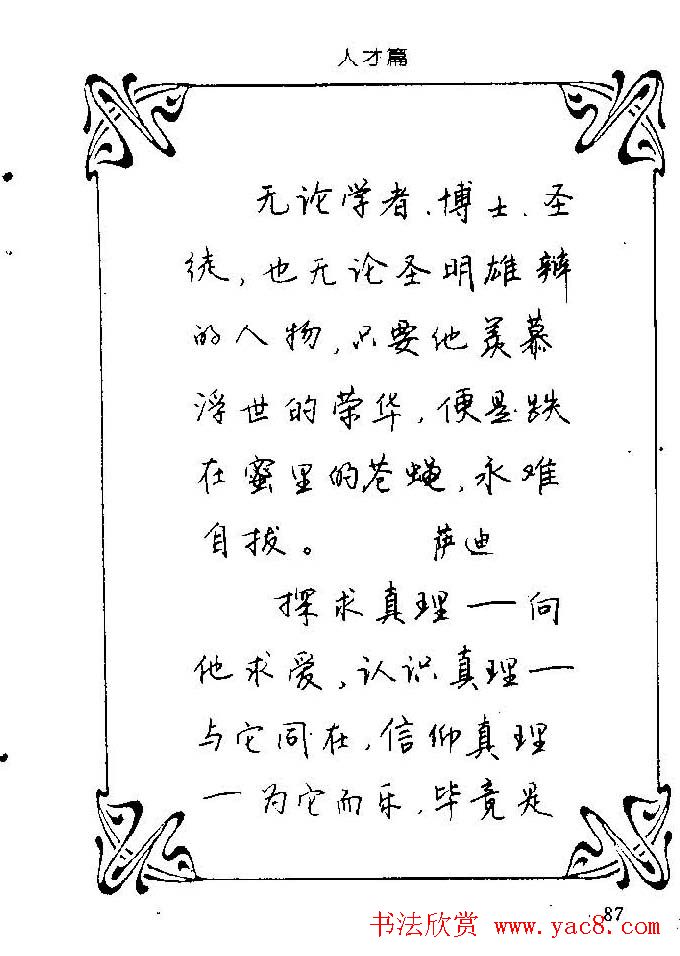 人才篇
无论学者、博士、圣
徒，也无论圣明雄辩
的人物，只要他羡慕
浮世的荣华，便是跌
在蜜里的苍蝇，永难
自拔。 萨迪
探求真理——向
他求爱，认识真理—
与它同在，信仰真理
—为它而乐，毕竟是
87
书法欣赏 www.yac8.com